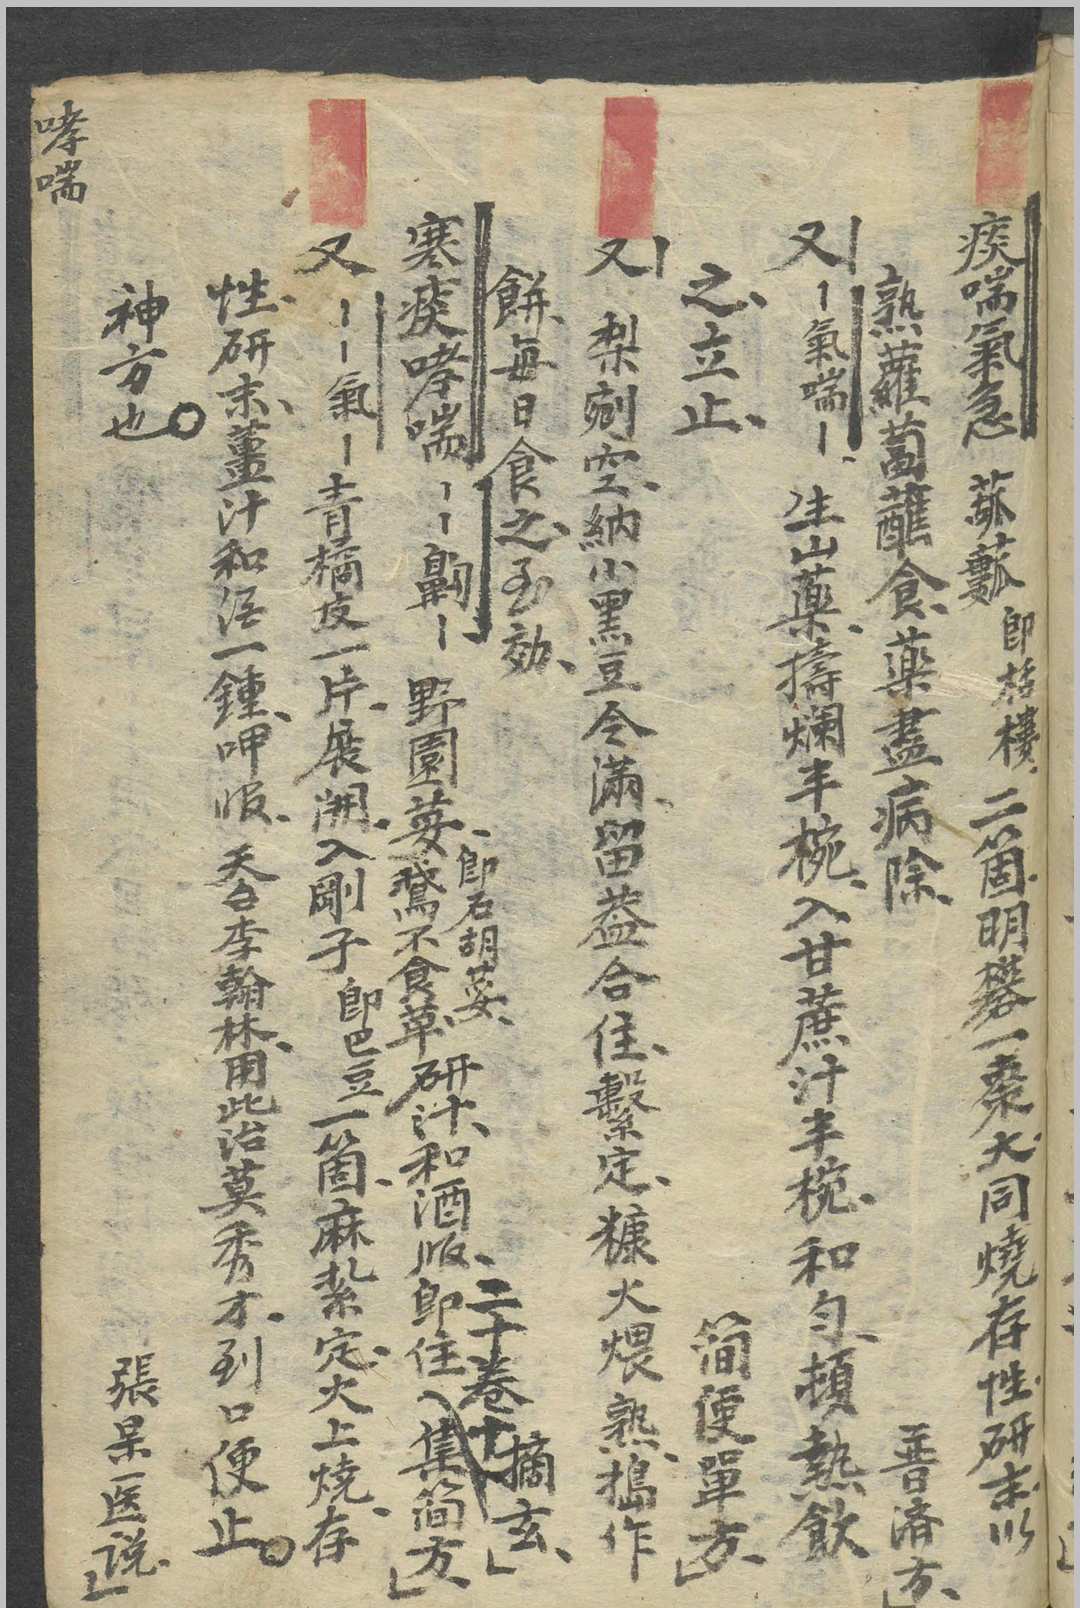 痰喘氣急 菰蔞 即栝樓 二箇明礬一棗大同燒存性研末以
熟蘿蔔蘸食藥盡病除 普済方
又 ーー氣喘ー 生山藥擣爛半椀入甘蔗汁半椀和勻頓熱飲
之立止 簡便單方
又 梨剜空納小黑豆令滿留葢合住繫定糠火煨熟搗作
餅每日食之至効 摘玄
寒痰哮喘 ーー齁ー 野園荽 即石胡荽 鵞不食草 研汁和酒服即住 集簡方 二十卷十
又 ーー氣ー 青橘皮一片展開入剛子 即巴豆 一箇麻紮定火上燒存
性研末薑汁和酒一鍾呷服 天台李翰林用此治莫秀才到口便止
神方也 張杲医说
哮喘